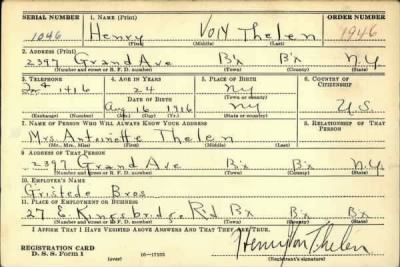 SERIAL NUMBER 1. NAME (Print) ORDER NUMBER
1046 Henry Von Thelen 1946
(First) (Middle) (Last)
2. ADDRESS (Print)
2397 Grand Ave B'x B'x N.Y.
(Number and street or R. F. D. number) (Town) (County) (State)
3. TELEPHONE 4. AGE IN YEARS 5. PLACE OF BIRTH 6. COUNTRY OF CITIZENSHIP
1416 24 NY
DATE OF BIRTH (Town or county)
Aug 16 1916 NY U.S.
(Exchange) (Number) (Mo.) (Day) (Yr.) (State or country)
7. NAME OF PERSON WHO WILL ALWAYS KNOW YOUR ADDRESS 8. RELATIONSHIP OF THAT PERSON
Mrs. Antoinette Thelen
(Mr., Mrs., Miss) (First) (Middle) (Last)
9. ADDRESS OF THAT PERSON
2397 Grand Ave B'x B'x N.Y.
(Number and street or R. F. D. number) (Town) (County) (State)
10. EMPLOYER'S NAME
Gristede Bros
11. PLACE OF EMPLOYMENT OR BUSINESS
27 E. Kingsbridge Rd Bx Bx N.Y.
(Number and street or R. F. D. number) (Town) (County) (State)
I AFFIRM THAT I HAVE VERIFIED ABOVE ANSWERS AND THAT THEY ARE TRUE.
REGISTRATION CARD Henry Von Thelen
D. S. S. Form 1 (over) 16—17105 (Registrant's signature)